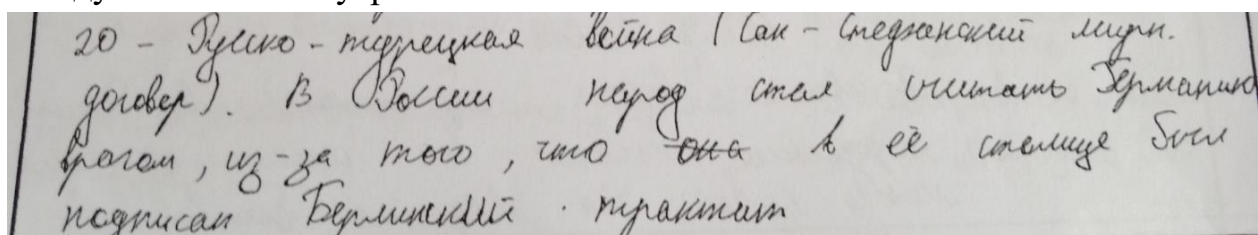 20 - Русско-турецкая война (Сан-Стефанский мирн.
договор). В России народ стал считать Германию
врагом, из-за того, что она в её столице был
подписан Берлинский трактат